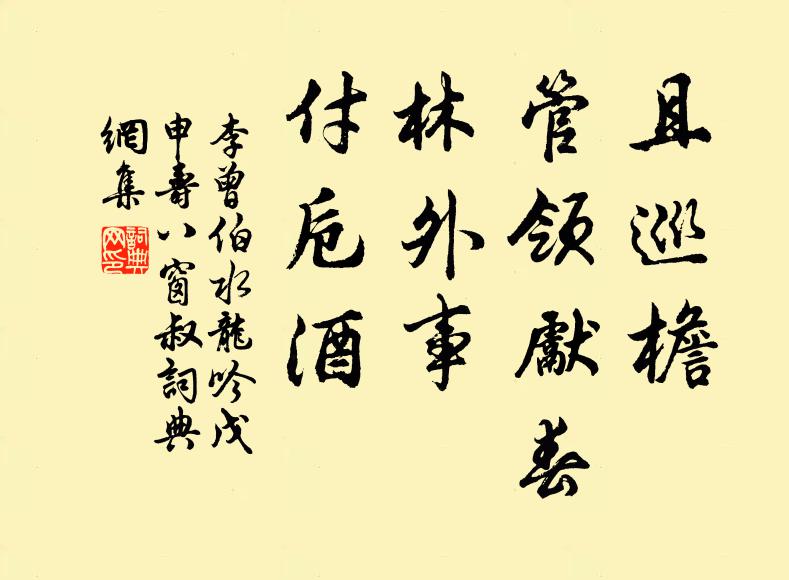 且巡檐
管領獻春
林外事
付卮酒
李曾伯水龍吟戊
申壽八窗叔詞典
網集
詞典
网印